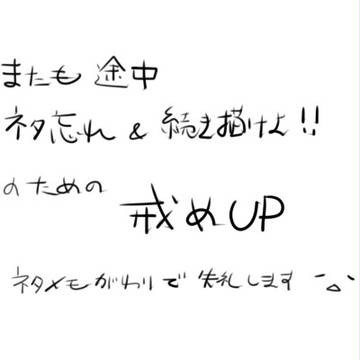 またも 途中
ネタ忘れ & 続き描けよ!!
のための
戒めUP
ネタメモがわりで 失礼します